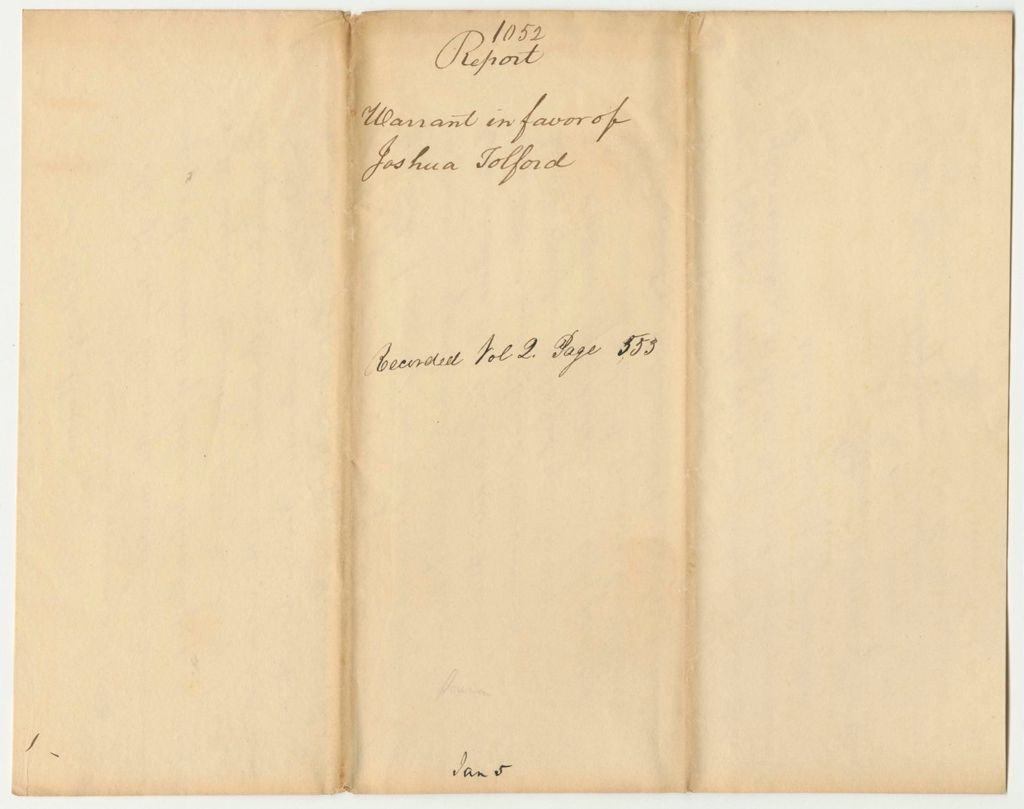 1052
Report
Warrant in favor of
Joshua Tolford
Recorded Vol 2. Page 553
Jan 5